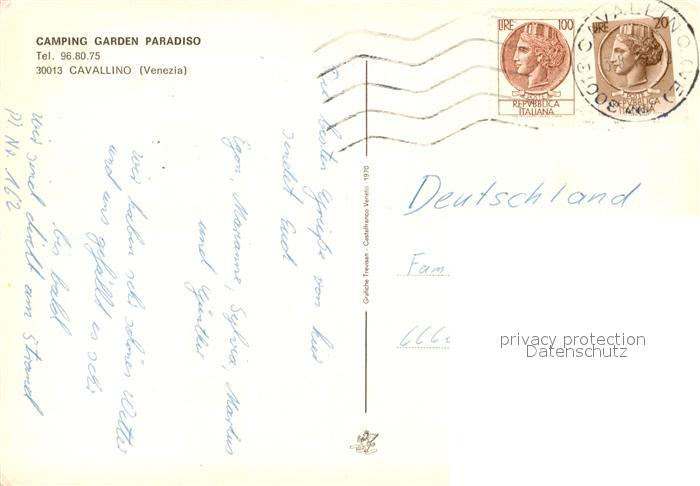 CAMPING GARDEN PARADISO
Tel. 96.80.75
30013 CAVALLINO (Venezia)
LIRE 100
POSTE
REPVBBLICA
ITALIANA
LIRE 20
POSTE
REPVBBLICA
ITALIANA
CAVALLINO
Die besten Grüße von hier
sendet Euch
Egon, Marianne, Sylvia, Markus
und Günter
wir haben sehr schönes Wetter
und uns gefällt es sehr
bis bald
wir sind direkt am Strand
Pl Nr. 162
Grafiche Trevisan - Castelfranco Veneto - 1970
Deutschland
Fam
666
privacy protection
Datenschutz